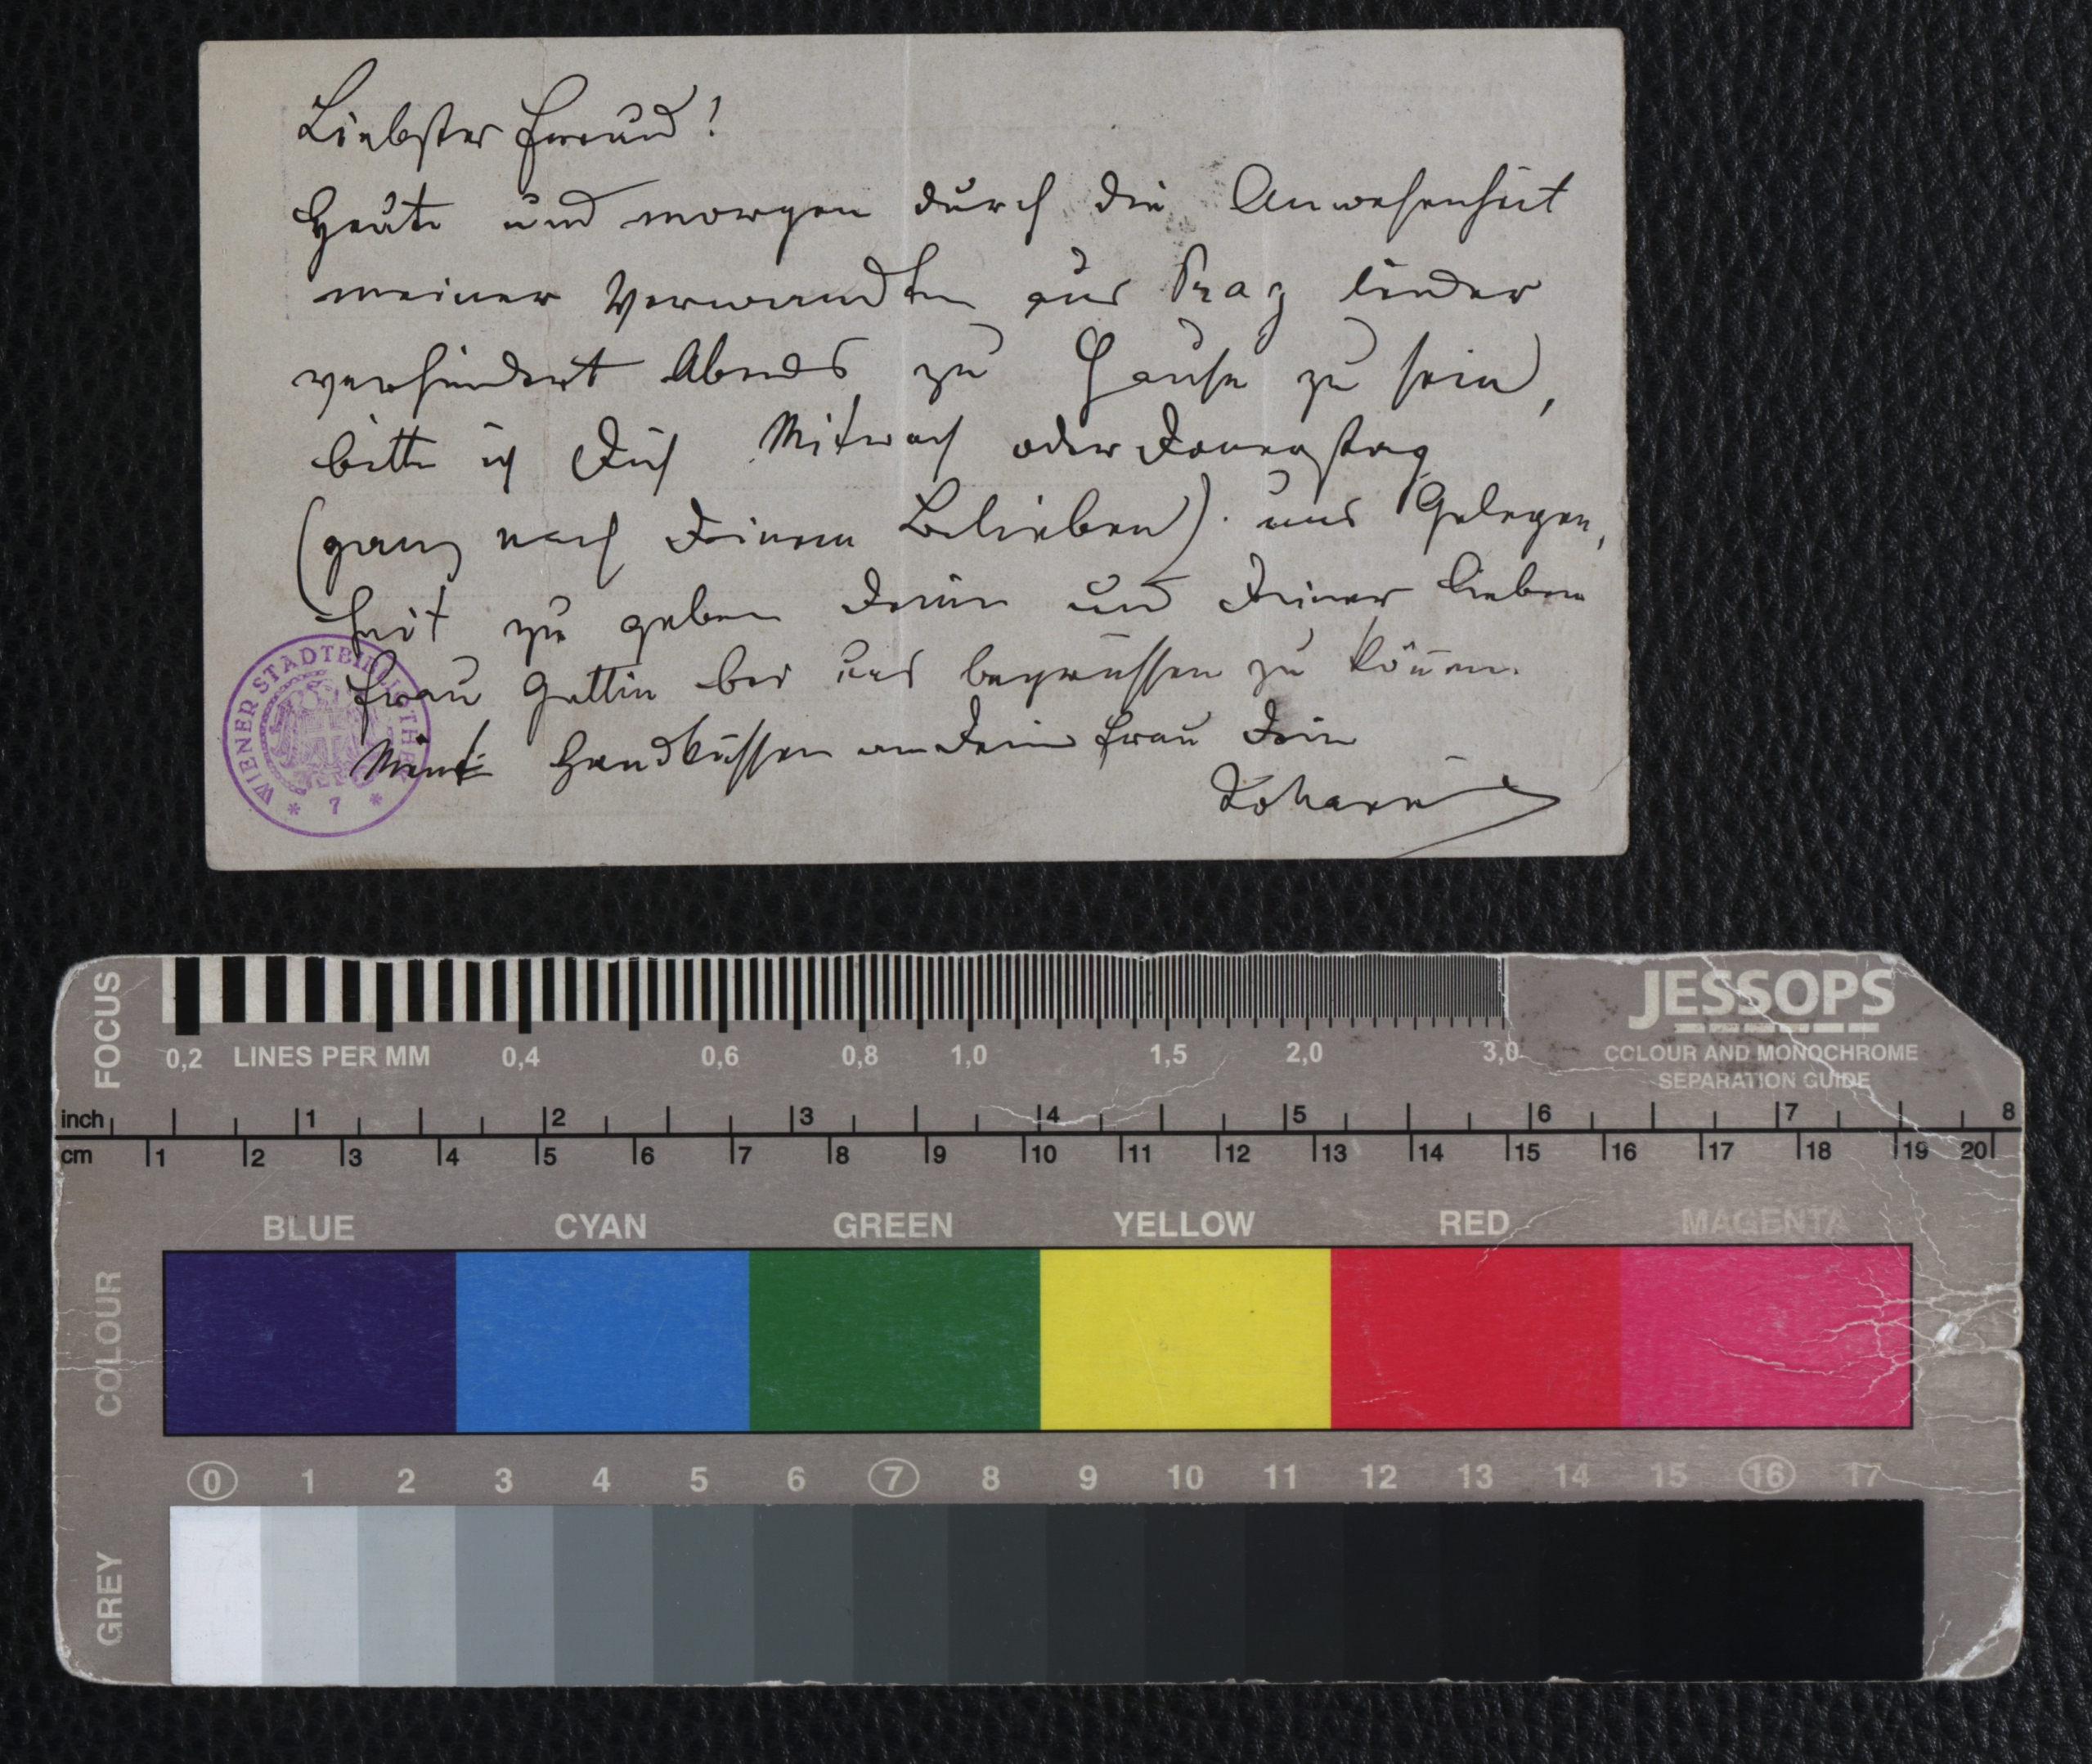 Liebster Freund!
Heute und morgen durch die Anwesenheit
meiner Verwandten aus Prag leider
verhindert Abends zu Hause zu sein,
bitte ich Dich Mitwoch oder Donnerstag
(ganz nach Deinem Belieben) uns Gelegen,
heit zu geben Deine und Deiner lieben
Frau Gattin bei uns begrüssen zu köñen.
Handküssen an Deine Frau Dein
Johann
WIENER STADTBIBLIOTHEK
* 7 *
FOCUS
0,2 LINES PER MM 0,4 0,6 0,8 1,0 1,5 2,0 3,0
JESSOPS
COLOUR AND MONOCHROME
SEPARATION GUIDE
inch 1 2 3 4 5 6 7 8
cm 1 2 3 4 5 6 7 8 9 10 11 12 13 14 15 16 17 18 19 20
BLUE CYAN GREEN YELLOW RED MAGENTA
COLOUR
0 1 2 3 4 5 6 7 8 9 10 11 12 13 14 15 16 17
GREY